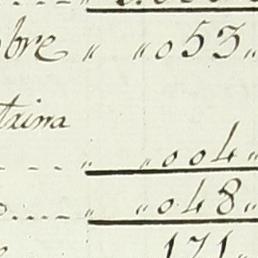 bre " " 053 "
trina
" " 004 "
" " 048 "
171 "